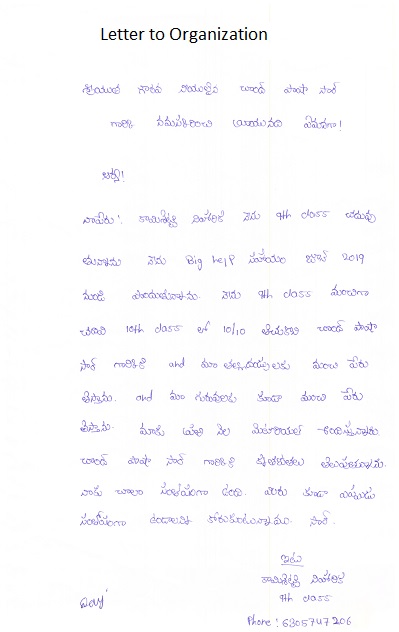 Letter to Organization
శ్రీయుత గౌరవ నీయులైన చాంద్ పాషా సార్
గారికి నమస్కరించి వ్రాయునది ఏమనగా!
సార్!
నాపేరు: కామిశెట్టి నిహారిక నేను 9th class చదువు
తున్నాను నేను Big help సహాయం జూన్ 2019
నుండి పొందుతున్నాను. నేను 9th class మంచిగా
చదివి 10th class లో 10/10 తెచ్చుకొని చాంద్ పాషా
సార్ గారికి and మా తల్లిదండ్రులకు మంచి పేరు
తెస్తాను. and మా గురువులకు కూడా మంచి పేరు
తెస్తాను. మాకు ప్రతి నెల మెటీరియల్ అందిస్తున్నారు
చాంద్ పాషా సార్ గారికి కృతజ్ఞతలు తెలుపుతున్నాను.
నాకు చాలా సంతోషంగా ఉంది. మీరు కూడా ఎప్పుడు
సంతోషంగా ఉండాలని కోరుకుంటున్నాము సార్.
ఇట్లు
కామిశెట్టి నిహారిక
9th class
Phone: 6305747206